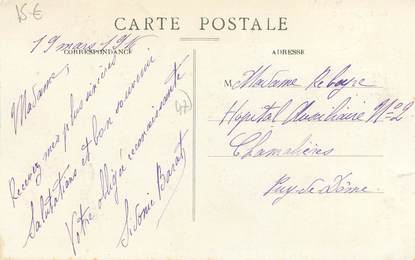 15€
CARTE POSTALE
CORRESPONDANCE
ADRESSE
19 mars 191
Madame,
Recevez mes plus sincères
Salutations et bon souvenir
Votre obligée reconnaissante
Sidonie
M Madame
Hopital Auxiliaire No 2
Chamalières
Puy-de-Dôme